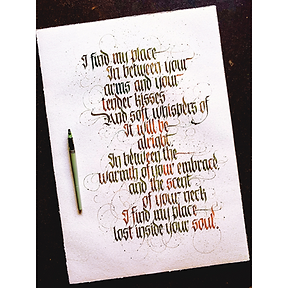 I find my place
In between your
arms and your
tender kisses
And soft whispers of
It will be
alright.
In between the
warmth of your embrace
and the scent
of your neck
I find my place
lost inside your soul.